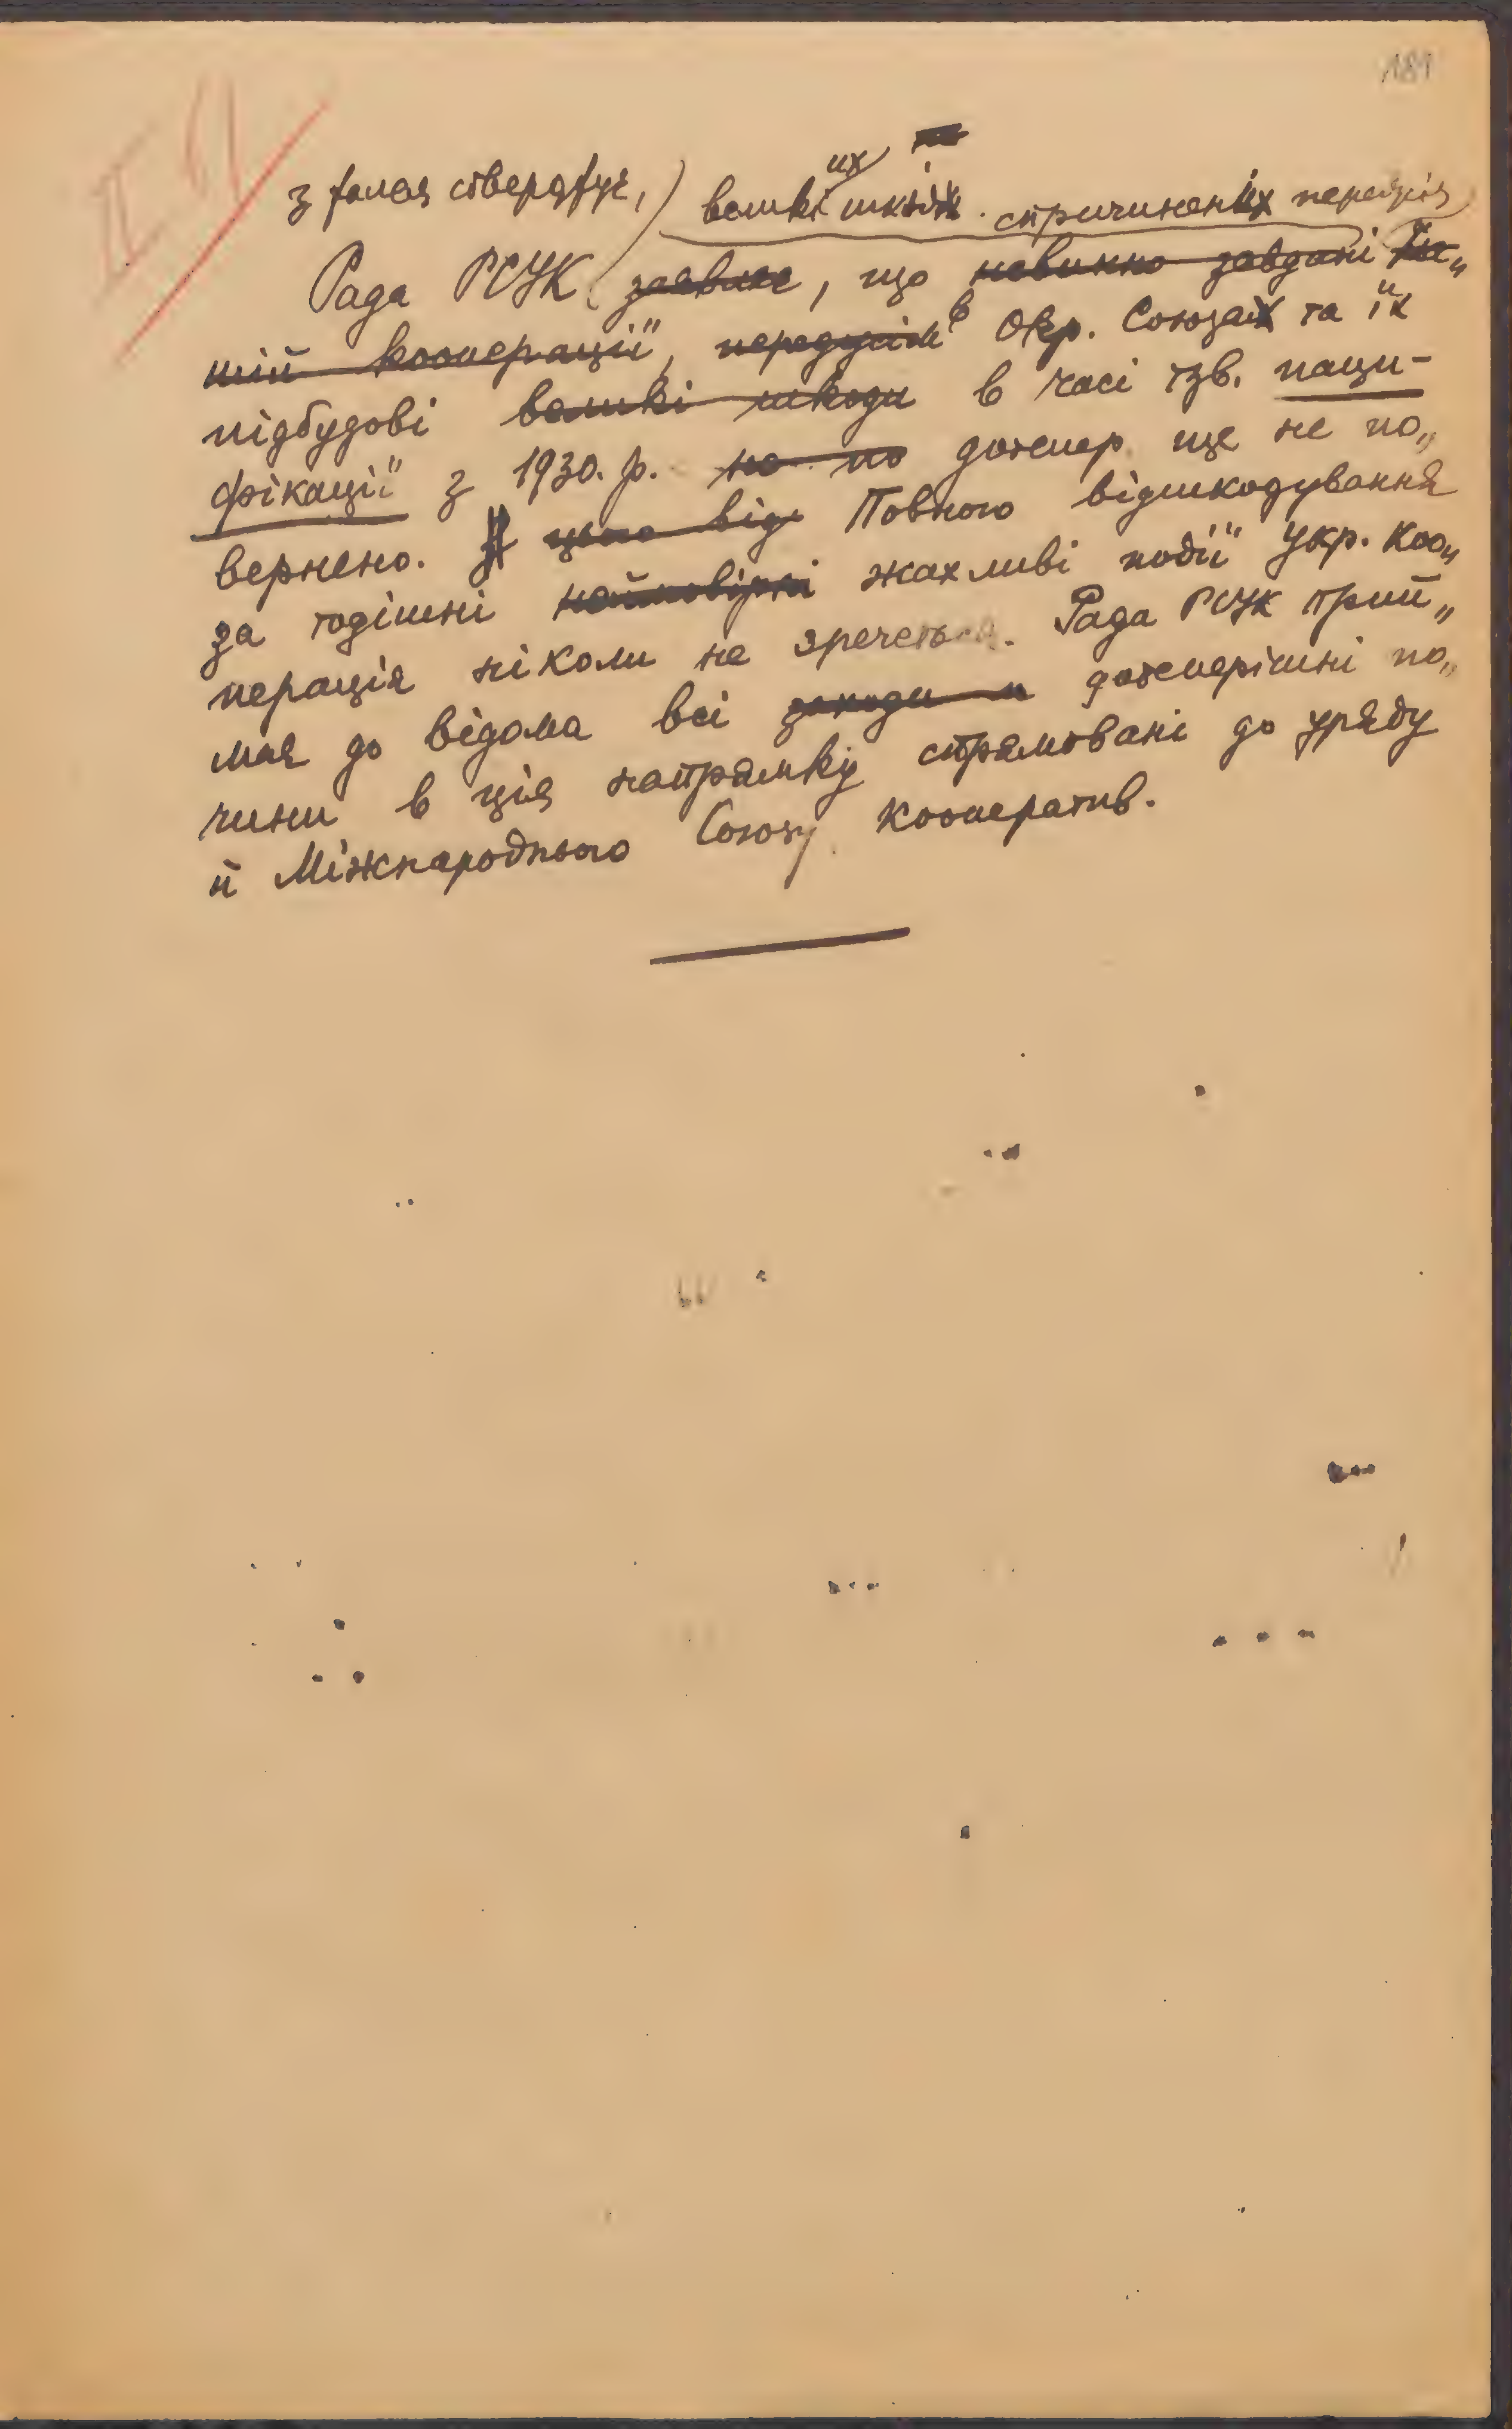 189
II
з жалем стверджує,
великих шкід спричинених передусім
Рада РСУК заявляє, що невинно завдані на„
шій кооперації, передусім в Окр. Союзах та їх
підбудові великі шкоди в часі тзв. паци-
фікації" з 1930. р. не по дотепер ще не по„
вернено. З цього від Повного відшкодування
за тодішні неймовірні жахливі події Укр. Коо„
перація ніколи не зречеться. Рада РСУК прий„
має до відома всі заходи и дотеперішні по„
чини в цім напрямку спрямовані до уряду
й Міжнароднього Союзу Кооператив.